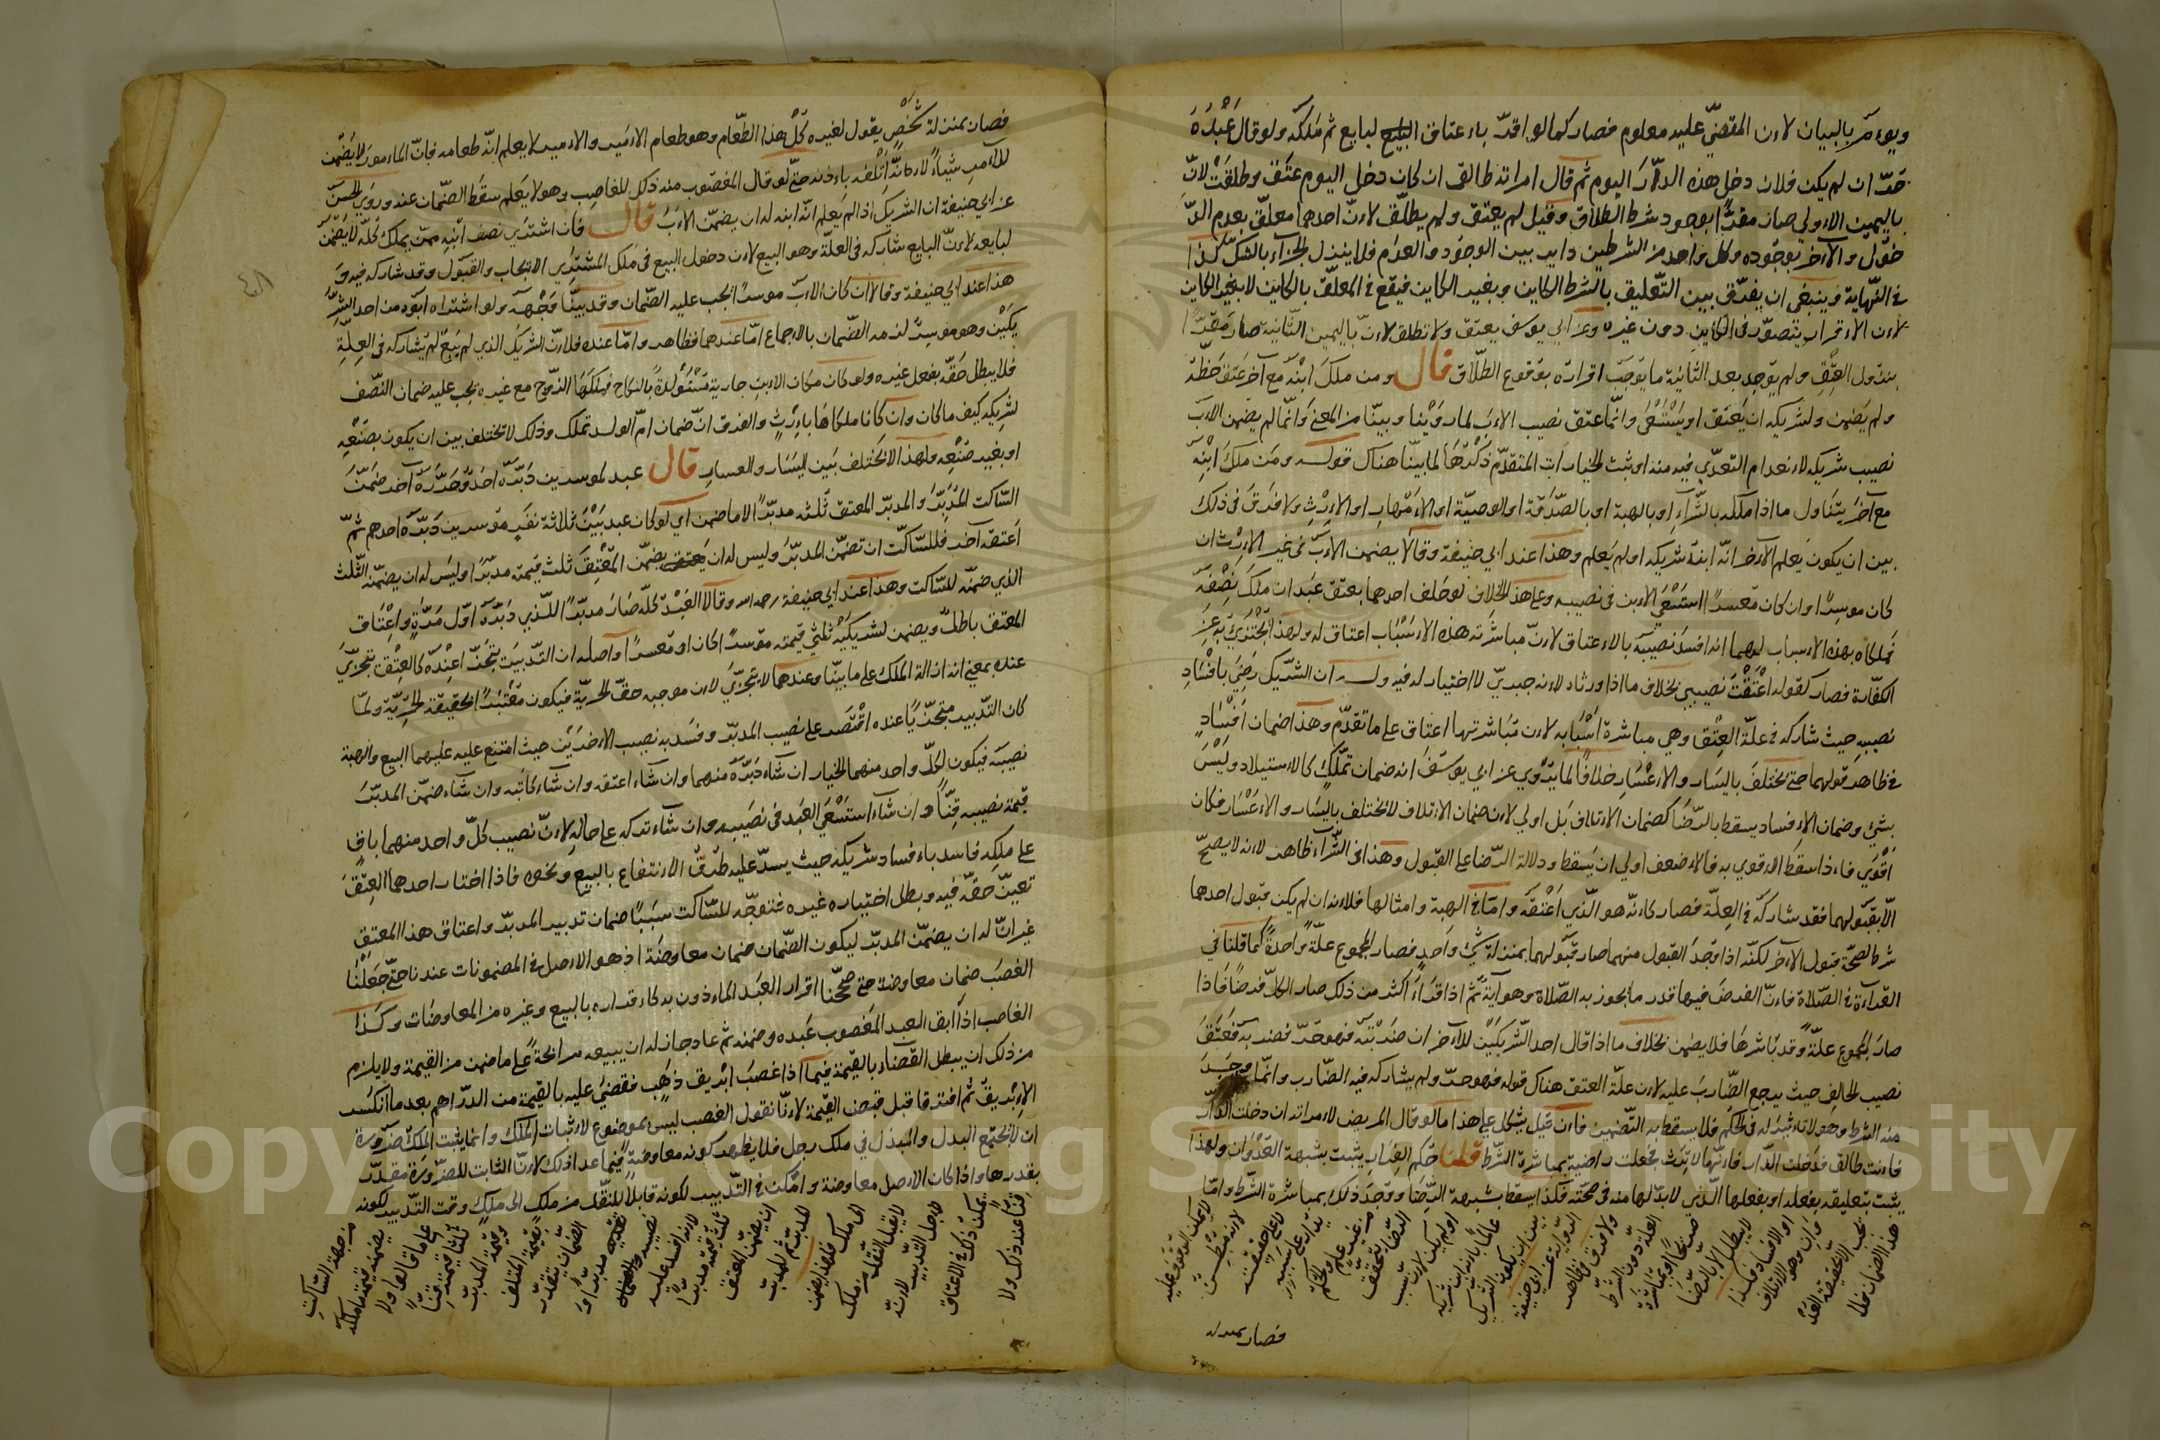 ويؤمر بالبيان لان المقضيّ عليه معلوم فصار كما لو اقرّ باعتاق البايع ثم ملكه ولو قال عبده
حرّ ان لم يكن فلان دخل هذه الدار اليوم ثم قال امراته طالق ان كان دخل اليوم عتق وطلقت لانّ
باليمين الاولى صار مقرّا بوجود شرط الطلاق وقيل لم يعتق ولم يطلّق لانّ احدهما معلّق بعدم الدّ
خول والآخر بوجوده وكل واحد من الشرطين داير بين الوجود والعدم فلا ينزل الجزاء بالشكّ كذا
في النهاية وينبغي ان يفرّق بين التعليق بالشرط الكاين وبغير الكاين فيقع في المعلّق بالكاين لا بغير الكاين
لان الاقرار يتصوّر في الكاين دون غيره وعن ابي يوسف يعتق ولا تطلق لانّ باليمين الثانية صار مقرّا
بنزول العتق ولم يوجد بعد الثانية ما يوجب اقراره بوقوع الطلاق قال ومن ملك ابنه مع آخر عتق حظّه
ولم يضمن ولشريكه ان يعتق او يستسعى وانّما عتق نصيب الاب لما روينا وبينّا من المعنى وانّما لم يضمن الاب
نصيب شريكه لانعدام التعدّي فيه منه او ثبت الخيارات المتقدّم ذكرها لما بينّا هناك قوله ومن ملك ابنه
مع آخر يتناول ما اذا ملكه بالشراء او بالهبة او بالصّدقة او الوصيّة او الامهار او الارث ولا فرق في ذلك
بين ان يكون يعلم الآخر انّه ابن شريكه او لم يعلم وهذا عند ابي حنيفة وقالا يضمن الاب في غير الارث ان
كان موسرا وان كان معسرا استسعى الابن في نصيبه وعلى هذا الخلاف لو حلف احدهما بعتق عبد ان ملك نصفه
فملكاه بهذه الاسباب لهما انه افسد نصيبه بالاعتاق لانّ مباشرته هذه الاسباب اعتاق له ولهذا يجتزئ به عن
الكفارة فصار كقوله اعتقت نصيبي بخلاف ما اذا ورثاه لانه جبريّ لا اختيار له فيه وله ان الشريك رضي بافساد
نصيبه حيث شاركه في علّة العتق وهي مباشرة اسبابه لان مباشرتها اعتاق على ما تقدّم وهذا ضمان افساد
في ظاهر قولهما حتى يختلف باليسار والاعسار خلافا لما يروي عن ابي يوسف انه ضمان تملّك كالاستيلاد وليس
بشئ وضمان الافساد يسقط بالرّضا كضمان الاتلاف بل اولى لان ضمان الاتلاف لا يختلف باليسار والاعسار فكان
اقوى فاذا سقط الاقوى به فالاضعف اولى ان يسقط ودلالة الرّضا على القبول وهذا في الشراء ظاهر لانه لا يصحّ
الّا بقبولهما فقد شاركه في العلّة فصار كانّه هو الذي اعتقه وامّا في الهبة وامثالها فلانه ان لم يكن قبول احدهما
شرط لصحّة قبول الآخر لكنّه اذا وجد القبول منهما صار قبولهما بمنزلة شئ واحد فصار المجموع علّة واحدة كما قلنا في
القراءة في الصلاة فانّ الفرض فيها قدر ما يجوز به الصلاة وهو آية ثم اذا قراء اكثر من ذلك صار الكلّ فرضا فاذا
صار المجموع علّة وقد باشرها فلا يضمن بخلاف ما اذا قال احد الشريكين للآخر ان ضربته فهو حرّ فضربه فعتق
نصيب الحالف حيث يرجع الضارب عليه لان علّة العتق هناك قوله فهو حرّ ولم يشاركه فيه الضّارب وانّما وجد
منه الشرط وهو لا تاثير له في الحكم فلا يسقط به التضمين فان قيل يشكل على هذا ما لو قال المريض لامراته ان دخلت الدار
فانت طالق فدخلت الدار فانّها لا ترث فجعلت راضية بمباشرة الشرط قلنا حكم الفرار يثبت بشبهة العدوان ولهذا
يثبت بتعليقه بفعله او بفعلها الّذي لا بدّ لها منه في صحّته فكذا يسقط بشبهة الرّضا ووجد ذلك بمباشرة الشّرط وامّا
هذا الضمان فلا
يجب الا بحقيقة العد
وان وهو الاتلاف
او الافساد فكذا
لا يبطل الا بالرّضا
صريحا او بمباشرة
العلّة دون الشرط
ولا فرق في ظاهر
الرواية عن ابي حنيفة
بين ان يكون الشريك
عالما بانه ابن شريكه
او لم يكن لان سبب
الرّضا يتحقّق
من غير علم والحكم
يدار على سببه
لا على حقيقته
لانه مبطّن
لا يمكن الوقوف عليه
فصار بمنزلة
فصار بمنزلة شخص يقول لغيره كل هذا الطّعام وهو طعام الامير والامير لا يعلم انّه طعامه فانّ المامور لا يضمن
للآمر شيئا لانّه اتلفه باذنه حتى لو قال المغصوب منه ذلك للغاصب وهو لا يعلم سقط الضّمان عنه وروي الحسن
عن ابي حنيفة ان الشريك اذا لم يعلم انّه ابنه له ان يضمّن الاب قال فان اشترى نصف ابنه ممن يملك كلّه لا يضمن
لبايعه لانّ البايع شاركه في العلّة وهو البيع لان دخول المبيع في ملك المشتري بالايجاب والقبول وقد شاركه فيه و
هذا عند ابي حنيفة وقالا ان كان الاب موسرا يجب عليه الضّمان وقد بينّا وجهه ولو اشتراه ابوه من احد الشر
يكين وهو موسر لزمه الضّمان بالاجماع امّا عندهما فظاهر وامّا عنده فلانّ الشريك الذي لم يبع لم يشاركه في العلّة
فلا يبطل حقّه بفعل غيره ولو كان مكان الابن جارية مستولدة بالنكاح فملكها الزوج مع غيره يجب عليه ضمان النّصف
لشريكه كيف ما كان وان كانا ملكاها بارث والفرق انّ ضمان امّ الولد تملّك وذلك لا يختلف بين ان يكون بصنعه
او بغير صنعه ولهذا لا يختلف بين اليسار والعسار قال عبد لموسرين دبّره احد وحرّره آخر ضمّن
السّاكت المدبّر والمدبّر المعتق ثلثه مدبّرا لا ما ضمن اي لو كان عبد بين ثلاثة نفر موسرين دبّره احدهم ثمّ
اعتقه آخر فللسّاكت ان تضمّن المدبّر وليس له ان يضمّن المعتق ثلث قيمته مدبّرا وليس له ان يضمّنه الثّلث
الذي ضمّنه للسّاكت وهذا عند ابي حنيفة رحمه الله وقالا العبد كلّه صار مدبّرا للّذي دبّره اوّل مرّة واعتاق
المعتق باطل ويضمن لشريكيه ثلثي قيمته موسرا كان او معسرا واصله ان التدبير يتجزّى عنده كالعتق يتجزّى
عنده بمعنى انه ازالة الملك على ما بينّا وعندهما لا يتجزّى لان موجبه حقّ الحريّة فيكون معتبرا بحقيقة الحريّة ولمّا
كان التدبير متجزّيا عنده اقتصر على نصيب المدبّر وفسد به نصيب الاخرين حيث امتنع عليه عليهما البيع والهبة
نصيبه فيكون لكلّ واحد منهما الخيار ان شاء دبّره منهما وان شاء اعتقه وان شاء كاتبه وان شاء ضمّن المدبّر
قيمة نصيبه قنّا وان شاء استسعى العبد في نصيبه وان شاء تركه على حاله لانّ نصيب كلّ واحد منهما باق
على ملكه فاسد بافساد شريكه حيث يسدّ عليه طرق الانتفاع بالبيع ونحوه فاذا اختار احدهما العتق
تعيّن حقّه فيه وبطل اختياره غيره فتوجّه للسّاكت سببا ضمان تدبير المدبّر واعتاق هذا المعتق
غير انّ له ان يضمّن المدبّر ليكون الضّمان ضمان معاوضة اذ هو الاصل في المضمونات عندنا حتى جعلنا
الغصب ضمان معاوضة حتى صحّحنا اقرار العبد الماذون به كاقراره بالبيع وغيره من المعاوضات وكذا
الغاصب اذا ابق العبد المغصوب عنده وضمنه ثم عاد جاز له ان يبيعه مرابحة على ما ضمن من القيمة ولا يلزم
من ذلك ان يبطل القضاء بالقيمة فيما اذا غصب ابريق ذهب فقضي عليه بالقيمة من الدّراهم بعد ما انكسر
الابريق ثم افترقا قبل قبض القيمة لانّا نقول الغصب ليس بموضوع لاثبات الملك وانما يثبت الملك ضرورة
ان لا يجتمع البدل والمبدل في ملك رجل فلا يظهر كونه معاوضة فيما عدا ذلك لانّ الثابت للضّرورة مقدّر
بقدرها واذا كان الاصل معاوضة وامكن في التّدبير لكونه قابلا للنّقل من ملك الى ملك وقت التّدبير لكونه
قنّا عند ذلك ولا
يمكن ذلك في الاعتاق
لاجل التدبير لانّه
لا يقبل النّقل من ملك
الى ملك فلهذا يضمن
المدبّر ثم للمدبّر
ان يضمّن المعتق
ثلث قيمته مدبّرا
لانه افسد عليه
نصيبه
مدبّرا و
الضّمان يتقدّر
بقيمة المتلف
وقيمة المدبّر
ثلثا قيمته قنّا
على ما قالوا ولا
يضمّنه قيمة ما ملكه
من جهة السّاكت